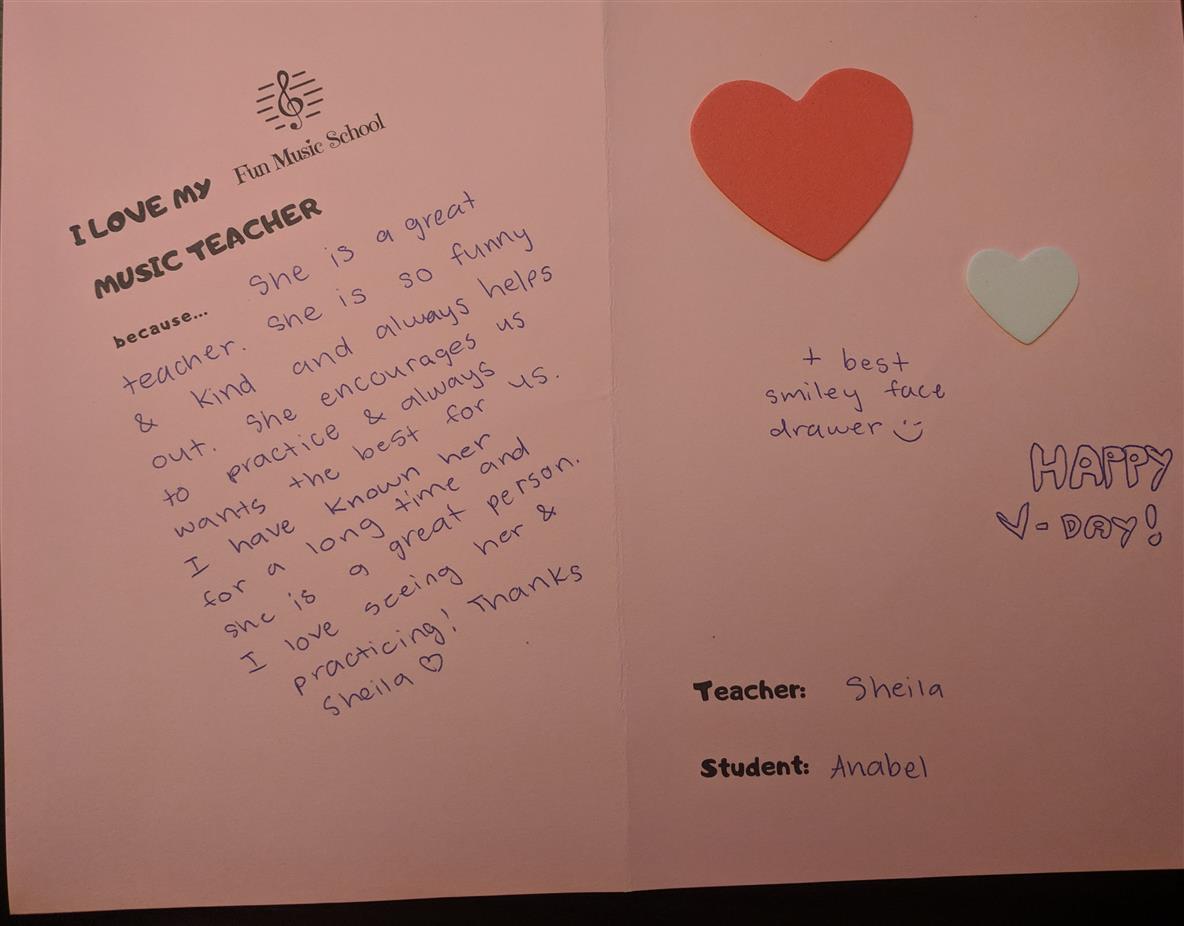 Fun Music School
I LOVE MY
MUSIC TEACHER
because... She is a great
teacher. She is so funny
& kind and always helps
out. She encourages us
to practice & always
wants the best for us.
I have known her
for a long time and
she is a great person.
I love seeing her &
practicing! Thanks
Sheila ♡
+ best
smiley face
drawer :)
HAPPY
V-DAY!
Teacher: Sheila
Student: Anabel